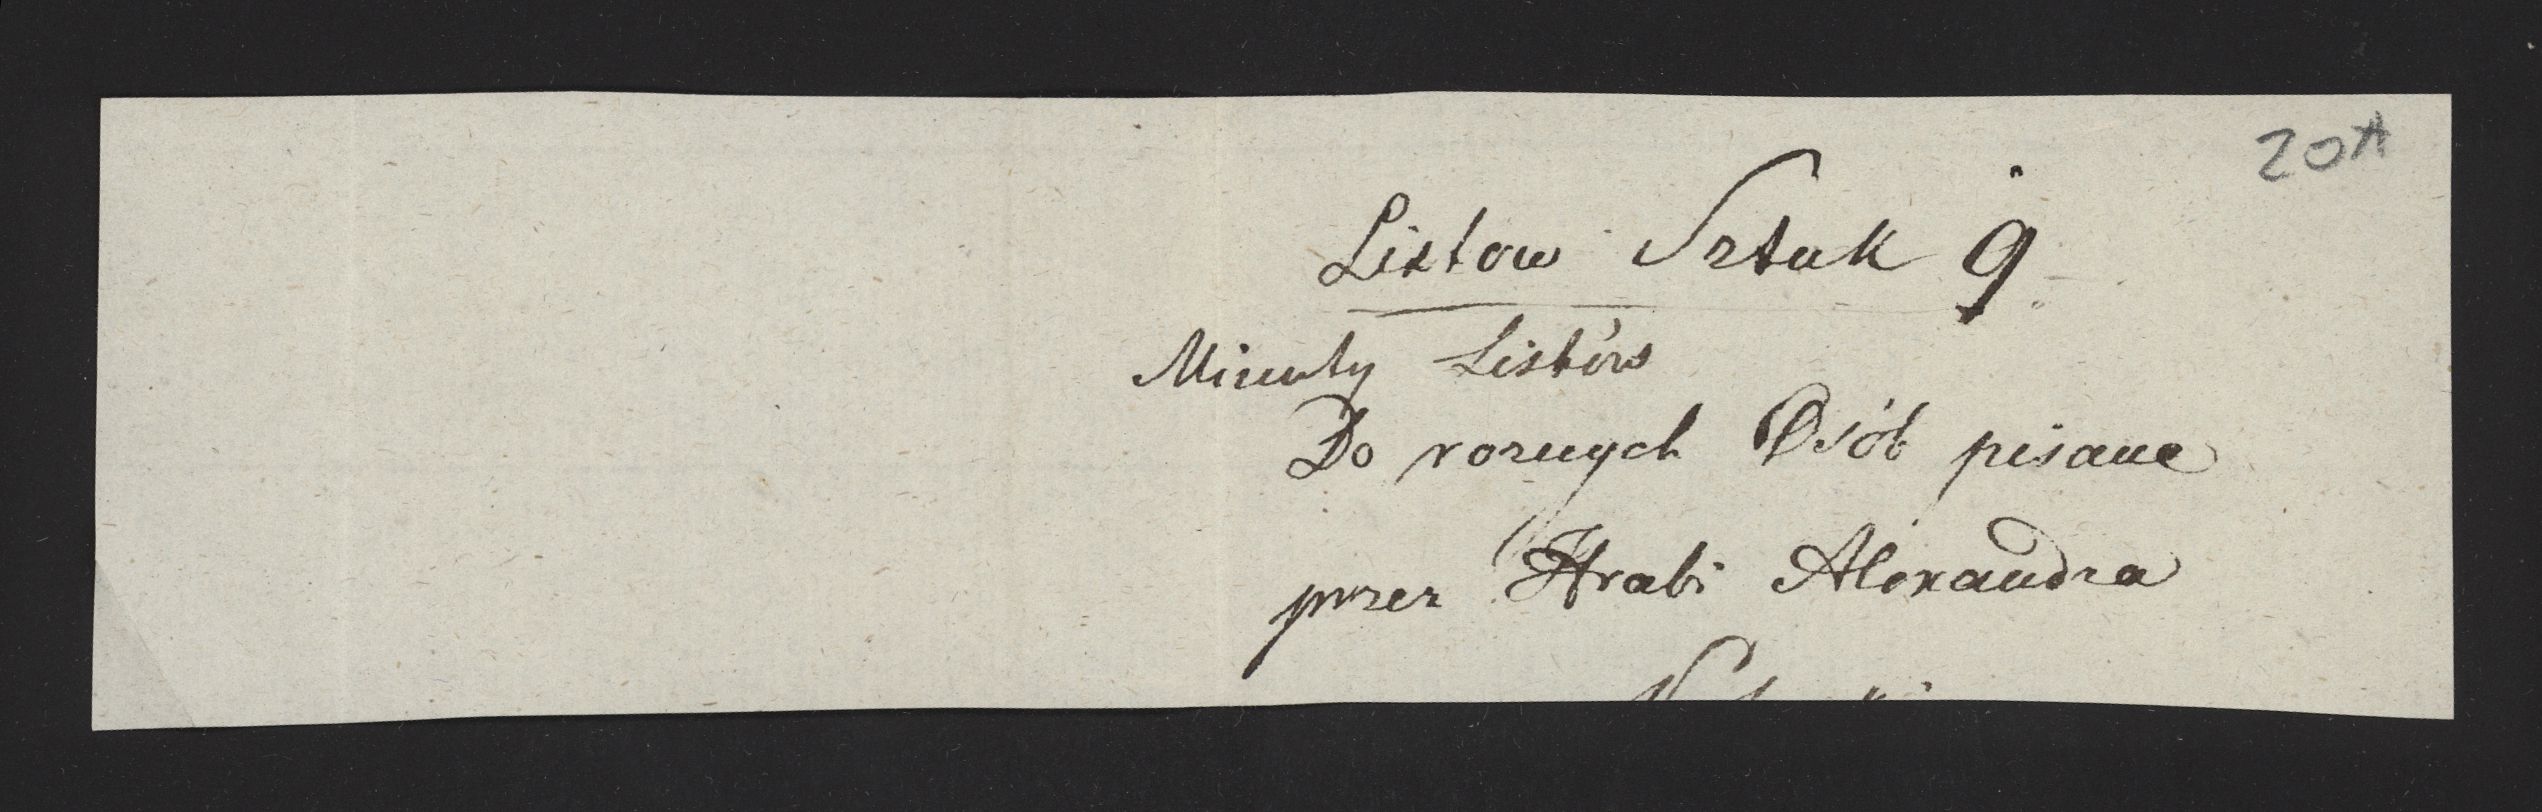 20A
Listow Sztuk 9
Minuty Listów
Do roznych Osób pisane
przez Hrabi Alexandra